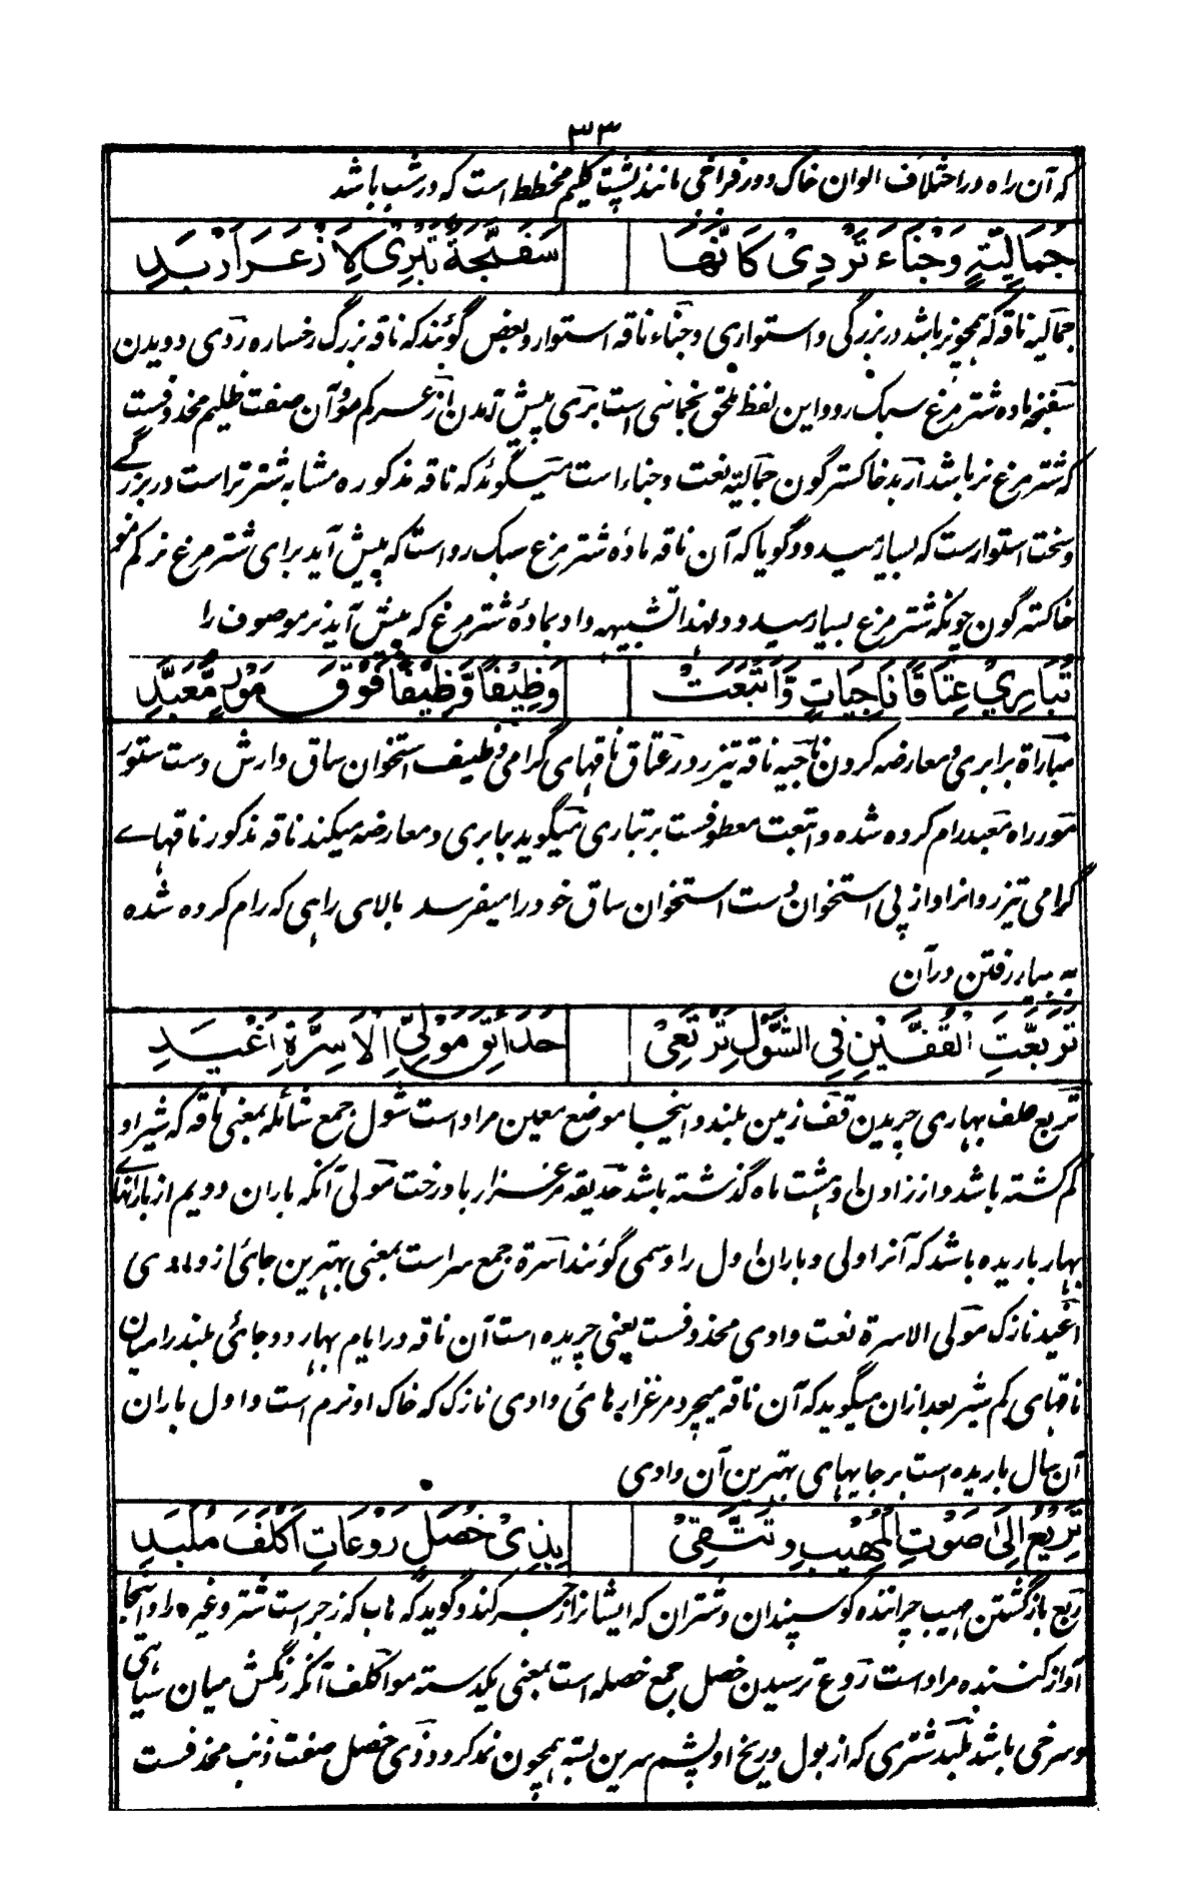 ۳۳
که آن راه در اختلاف الوان خاک و در فراخی مانند پشت گلیم مخطط است که در شب باشد
جُمَالِيَّةٍ وَجْنَاءَ تَرْدِىْ كَاَنَّهَا سَفَنَّجَةٌ تَبْرِىْ لِاَزْعَرَ اَرْبَدِ
جمالیه ناقه که همچو نر باشد در بزرگی و استواری وجناء ناقه استوار و بعض گویند که ناقه بزرگ رخساره ردی دویدن
سفنجه ماده شترمرغ سبک رو و این لفظ ملحق بخماسی است بری پیش آمدن ازعر کم مو و آن صفت ظلیم محذوفست
که شترمرغ نر باشد اربد خاکسترگون جمالیة نعت وجناء است میگوید که ناقه مذکوره مشابه شتر نر است در بزرگے
و سخت استوارست که بسیار میدود گویا که آن ناقه مادۀ شترمرغ سبک رو است که پیش آید برای شترمرغ نر کم مو
خاکسترگون چونکه شترمرغ بسیار میدود لهذا تشبیهه داد بمادۀ شترمرغ که پیش آید نر موصوف را
تُبَارِىْ عِتَاقًا نَاجِيَاتٍ وَّاَتْبَعَتْ وَظِيْفًا وَّظِيْفًا فَوْقَ مَوْرٍ مُّعَبَّدِ
مباراة برابری و معارضه کردن ناجیه ناقه تیز رو عتاق ناقهای گرامی وظیف استخوان ساق و ارش دست ستور
مور راه معبد رام کرده شده و اتبعت معطوفست بر تباری میگوید برابری و معارضه میکند ناقه مذکور ناقهاے
گرامی تیز رو انرا و از پی استخوان دست استخوان ساق خود را میفرسد بالای راهی که رام کرده شده
به بسیار رفتن در آن
تَرَبَّعَتِ الْقُفَّيْنِ فِى الشَّوْلِ تَرْتَعِىْ حَدَائِقَ مَوْلِىِّ الْاَسِرَّةِ اَغْيَدِ
تربع علف بهاری چریدن قف زمین بلند و اینجا موضع معین مراد است شول جمع شائله بمعنی ناقه که شیر او
کم گشته باشد و از زادن او هشت ماه گذشته باشد حدیقه مرغزار با درخت مولی آنکه باران دویم از بارانهاے
بهار باریده باشد که آنرا ولی و باران اول را وسمی گویند اسرة جمع سر است بمعنی بهترین جائی از وادی
اغید نازک مولی الاسرة نعت وادی محذوفست یعنی چریده است آن ناقه در ایام بهار دو جائی بلند را میان
ناقهای کم شیر بعد ازان میگوید که آن ناقه میچرد مرغزارهائی وادی نازک که خاک او نرم است و اول باران
آن سال باریده است بر جایهای بهترین آن وادی
تَرِيْعُ اِلٰى صَوْتِ الْمُهِيْبِ وَتَتَّقِىْ بِذِىْ خُصَلٍ رَوْعَاتِ اَكْلَفَ مُلْبَدِ
ریع بازگشتن مهیب چراننده گوسپندان و شتران که ایشانرا زجر کند و گوید که هاب که زجر است شتر و غیره را و اینجا
آواز کننده مراد است روع ترسیدن خصل جمع خصله است بمعنی یکدسته مو اکلف آنکه رنگش میان سیاهی
و سرخی باشد ملبد شتری که از بول و ریخ او پشم سرین بسته همچون نمد گردد ذی خصل صفت ذنب محذفست